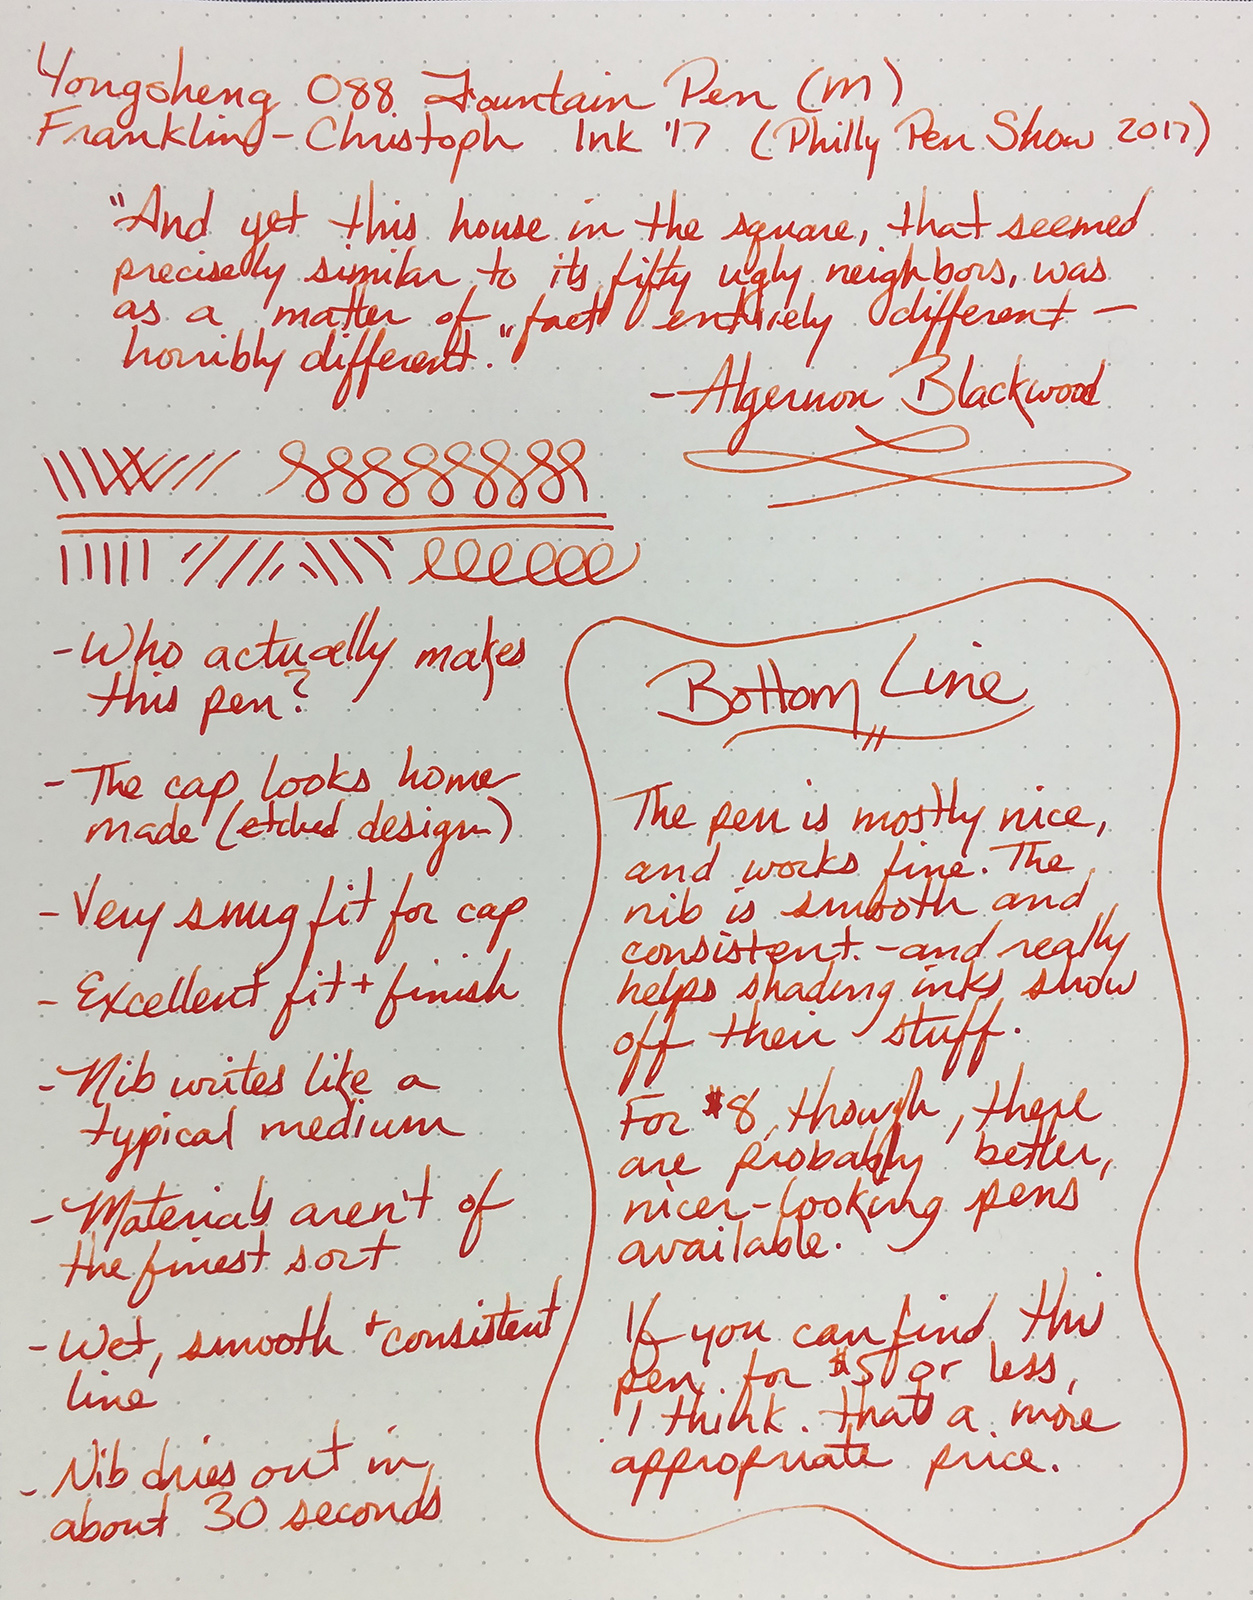 Yongsheng 088 Fountain Pen (M)
Franklin-Christoph Ink '17 (Philly Pen Show 2017)
"And yet this house in the square, that seemed
precisely similar to its fifty ugly neighbors, was
as a matter of fact entirely different —
horribly different."
- Algernon Blackwood
- Who actually makes
this pen?
- The cap looks home
made (etched design)
- Very snug fit for cap
- Excellent fit + finish
- Nib writes like a
typical medium
- Materials aren't of
the finest sort
- Wet, smooth + consistent
line
- Nib dries out in
about 30 seconds
Bottom Line
The pen is mostly nice,
and works fine. The
nib is smooth and
consistent. - and really
helps shading inks show
off their stuff.
For $8, though, there
are probably better,
nicer-looking pens
available.
If you can find this
pen for $5 or less,
I think that's a more
appropriate price.